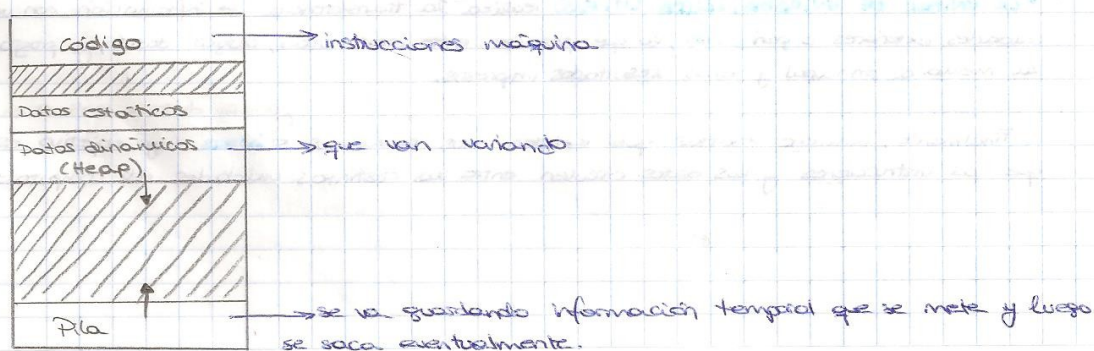 código → instrucciones máquina
Datos estáticos
Datos dinámicos → que van variando
(Heap)
Pila → se va guardando información temporal que se mete y luego
se saca eventualmente.